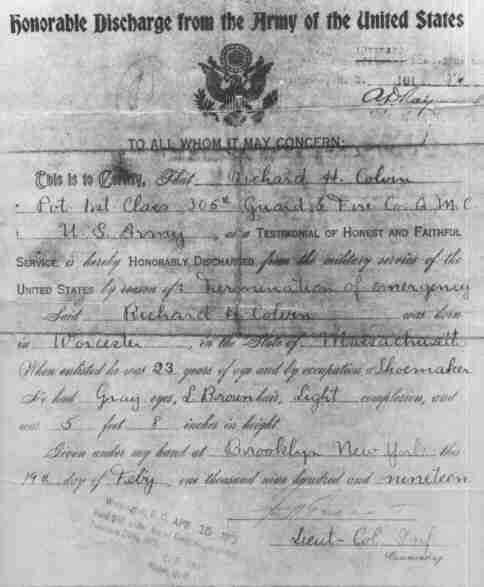 Honorable Discharge from the Army of the United States
TO ALL WHOM IT MAY CONCERN:
This is to Certify, That Richard H. Colvin
Pvt 1st Class 306th Guard & Fire Co. Q.M.C
U.S. Army, as a TESTIMONIAL OF HONEST AND FAITHFUL
SERVICE, is hereby HONORABLY DISCHARGED from the military service of the
UNITED STATES by reason of: Termination of emergency
Said Richard H Colvin was born
in Worcester, in the State of Massachusetts
When enlisted he was 23 years of age and by occupation a Shoemaker
He had Gray eyes, L Brown hair, Light complexion, and
was 5 feet 8 inches in height.
Given under my hand at Brooklyn New York this
19th day of Feby, one thousand nine hundred and nineteen
Washington, D.C. APR 16
Lieut-Col. Inf
Commanding